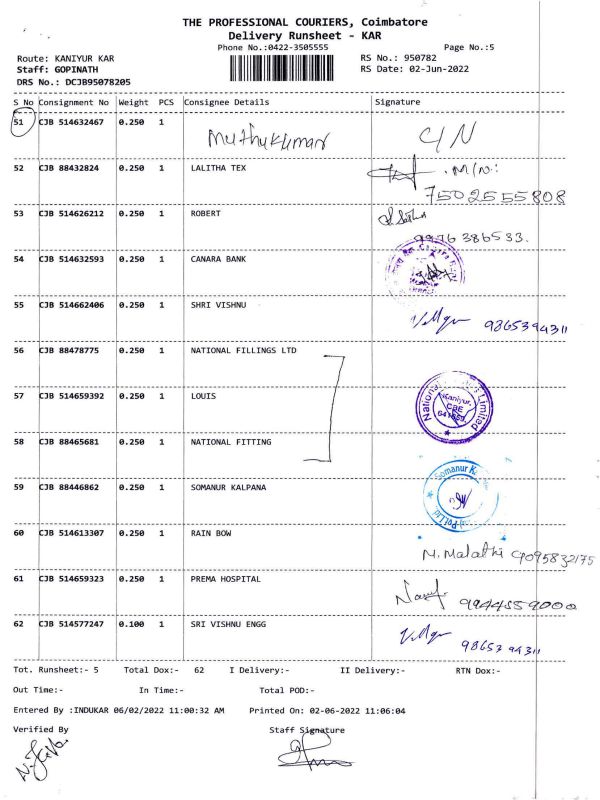 THE PROFESSIONAL COURIERS, Coimbatore
Delivery Runsheet - KAR
Phone No.:0422-3505555 Page No.:5
Route: KANIYUR KAR RS No.: 950782
Staff: GOPINATH RS Date: 02-Jun-2022
DRS No.: DCJB95078205
S No Consignment No Weight PCS Consignee Details Signature
51 CJB 514632467 0.250 1 Muthukumar C/N
52 CJB 88432824 0.250 1 LALITHA TEX M/N:
7502555808
53 CJB 514626212 0.250 1 ROBERT
9976386533.
54 CJB 514632593 0.250 1 CANARA BANK
55 CJB 514662406 0.250 1 SHRI VISHNU 9865394311
56 CJB 88478775 0.250 1 NATIONAL FILLINGS LTD
57 CJB 514659392 0.250 1 LOUIS National Limited Kaniyur, CBE
58 CJB 88465681 0.250 1 NATIONAL FITTING
59 CJB 88446862 0.250 1 SOMANUR KALPANA Somanur
60 CJB 514613307 0.250 1 RAIN BOW
M. Malathi 9095832175
61 CJB 514659323 0.250 1 PREMA HOSPITAL
9944559000
62 CJB 514577247 0.100 1 SRI VISHNU ENGG 9865394311
Tot. Runsheet:- 5 Total Dox:- 62 I Delivery:- II Delivery:- RTN Dox:-
Out Time:- In Time:- Total POD:-
Entered By :INDUKAR 06/02/2022 11:00:32 AM Printed On: 02-06-2022 11:06:04
Verified By Staff Signature